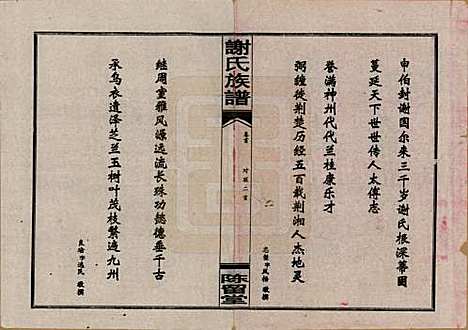 申伯封谢国尔来三千岁谢氏根深蒂固
蔓延天下世世传人太傅志
誉满神州代代兰桂康乐才
弼疃徙荆楚历经五百载荆湘人杰地灵
謝氏族譜
卷首
对联二首
陳留堂
继周室雅风源远流长珠功懿德垂千古
承乌衣遗泽芝兰玉树叶茂枝繁遍九州
敬撰
敬撰